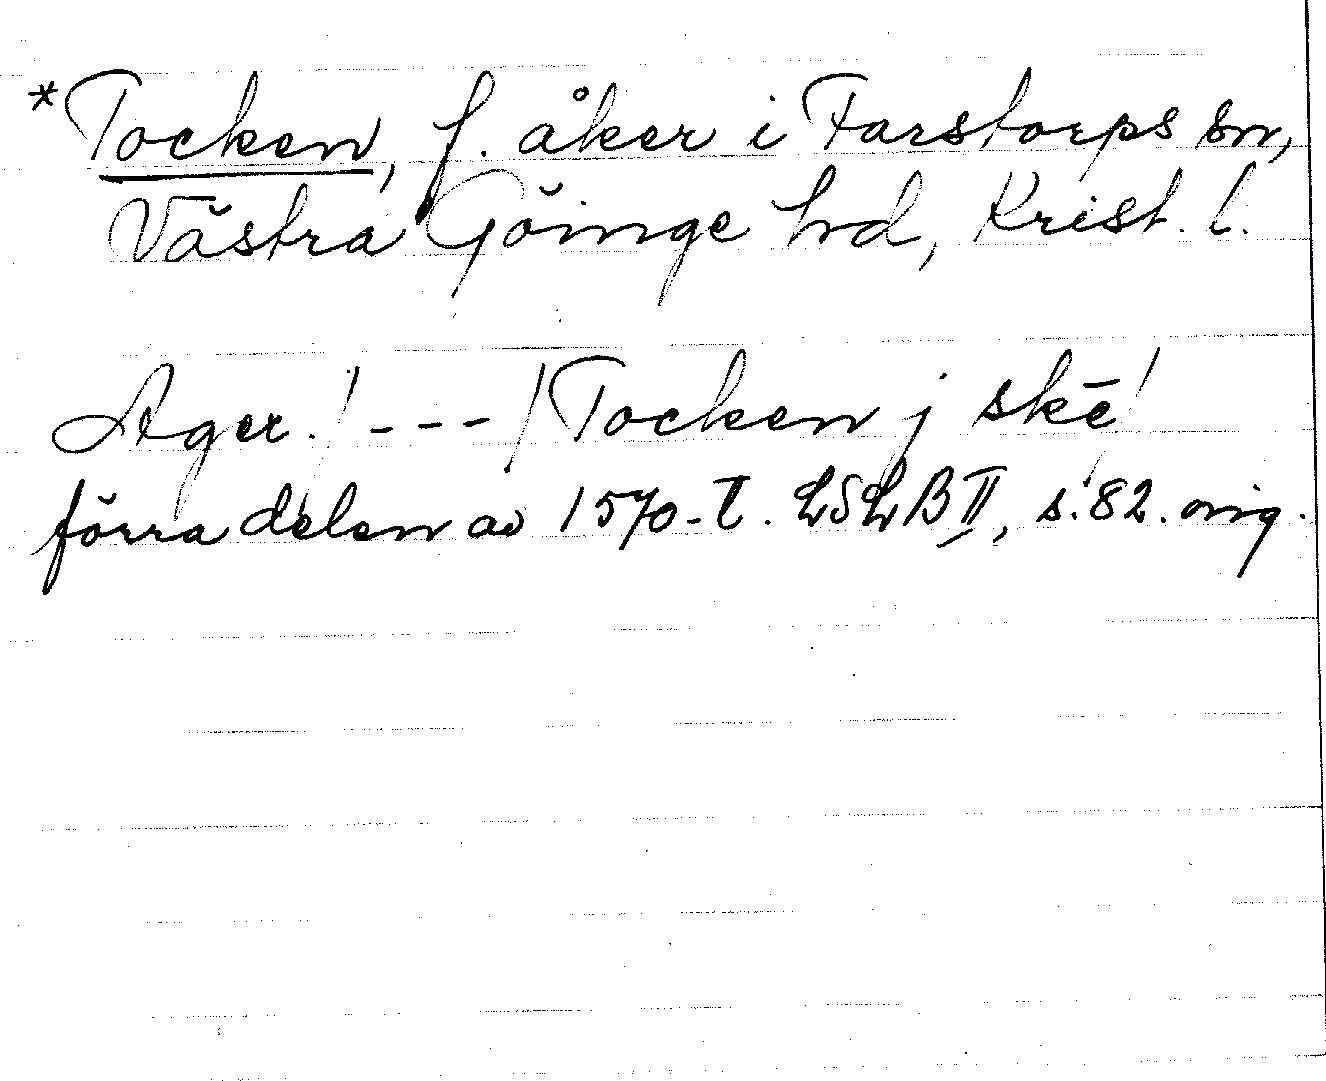 *Tocken, f. åker i Farstorps sn,
Västra Göinge hd, Krist. l.
Ager! --- /Tocken j skē!
förra delen av 1570-t. LSLB II, s. 82. orig.